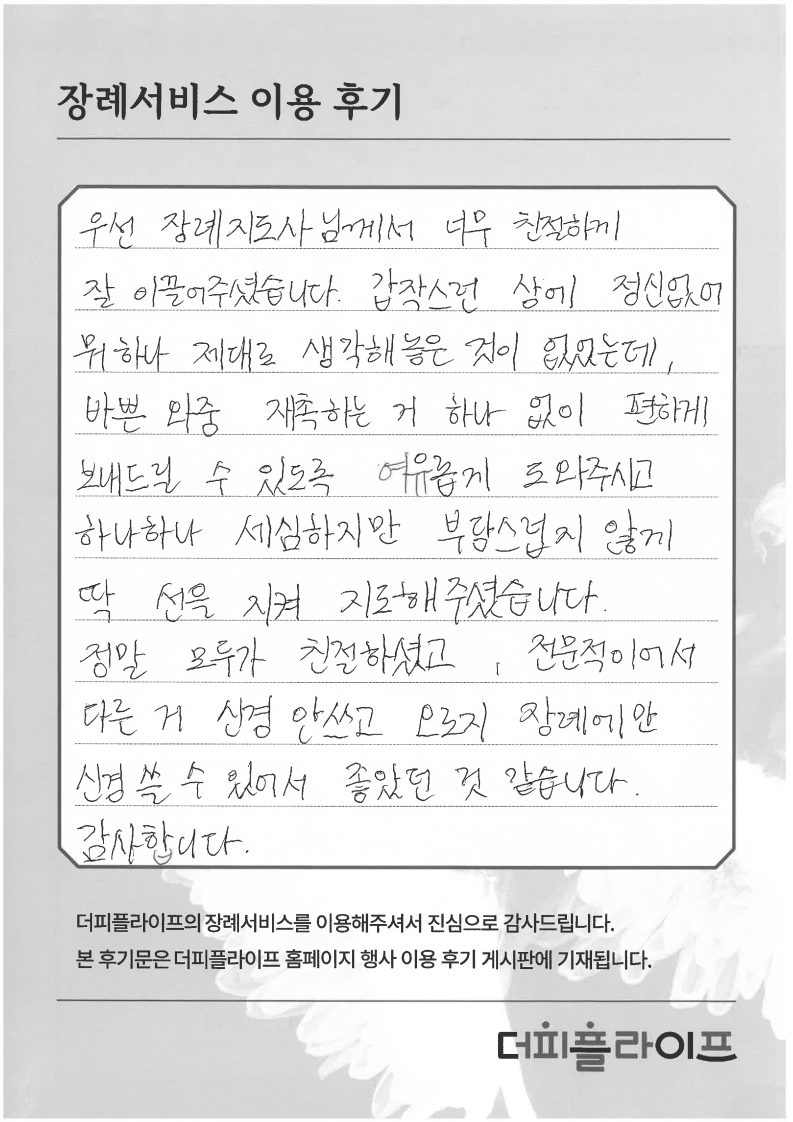 장례서비스 이용 후기
우선 장례지도사님께서 너무 친절하게
잘 이끌어주셨습니다. 갑작스런 상에 정신없어
뭐하나 제대로 생각해놓은 것이 없었는데,
바쁜 와중 재촉하는 거 하나 없이 편하게
보내드릴 수 있도록 여유롭게 도와주시고
하나하나 세심하지만 부담스럽지 않게
딱 선을 지켜 지도해주셨습니다.
정말 모두가 친절하셨고, 전문적이어서
다른 거 신경 안쓰고 오로지 장례에만
신경 쓸 수 있어서 좋았던 것 같습니다.
감사합니다.
더피플라이프의 장례서비스를 이용해주셔서 진심으로 감사드립니다.
본 후기문은 더피플라이프 홈페이지 행사 이용 후기 게시판에 기재됩니다.
더피플라이프